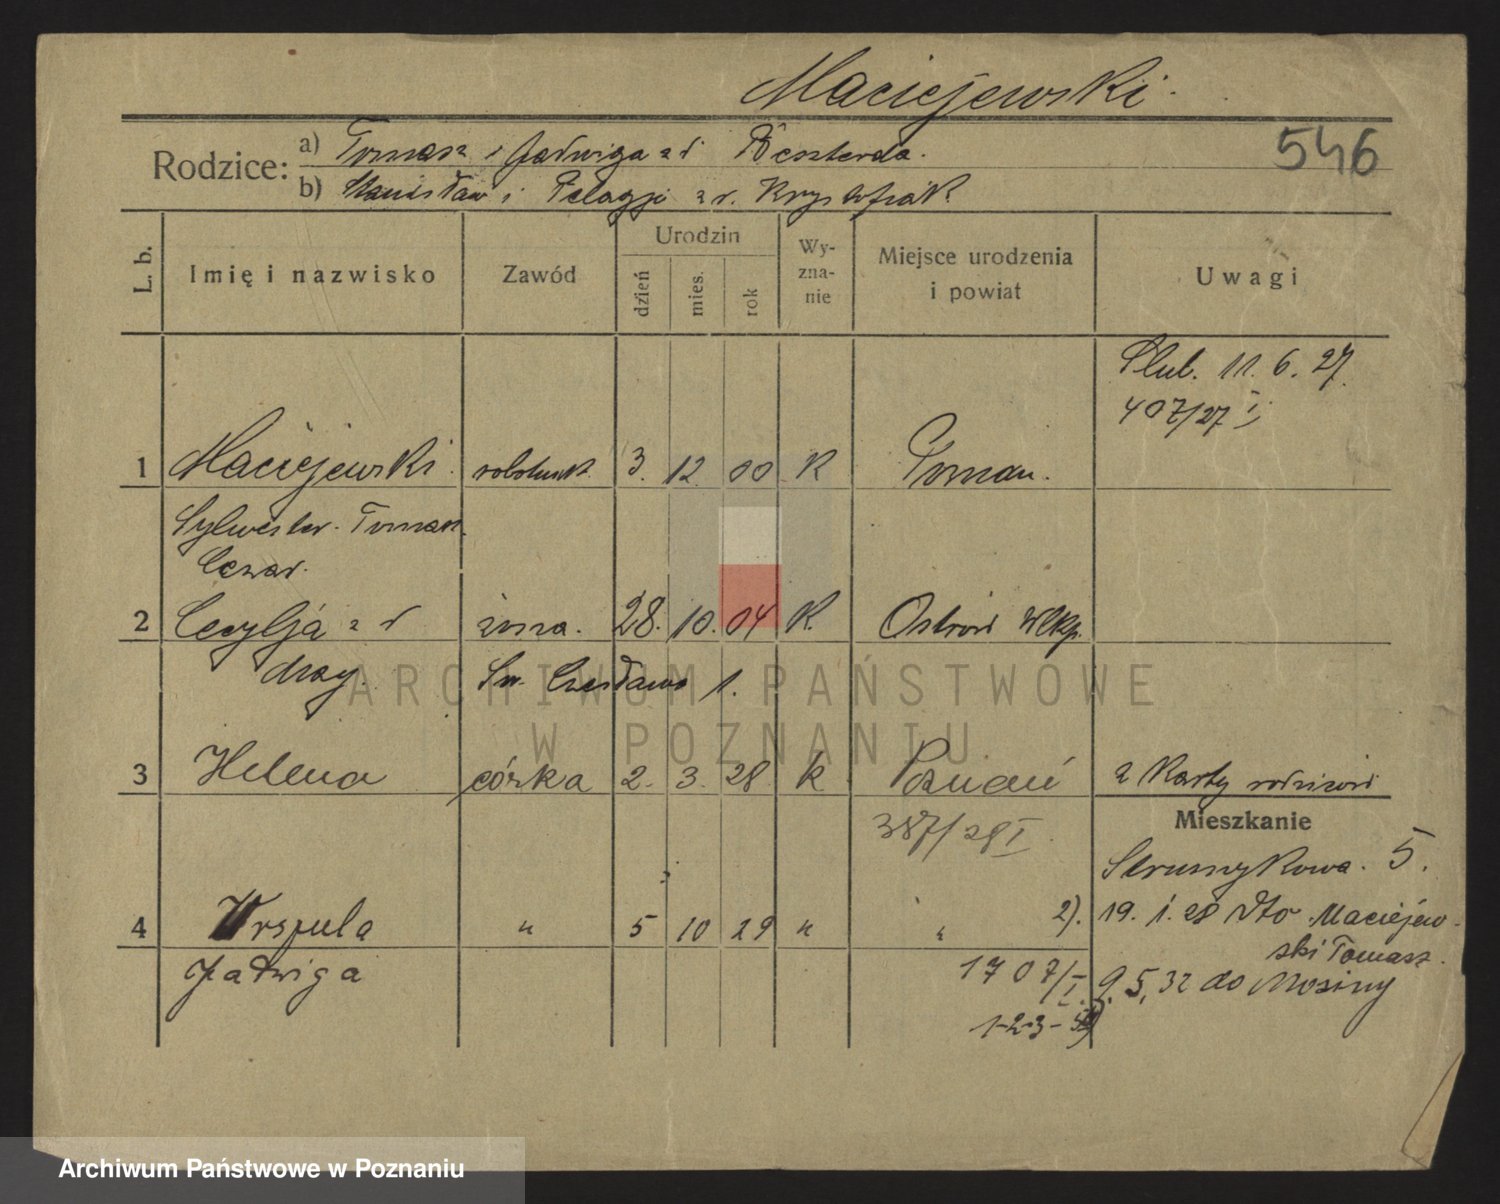 Maciejewski
546
Rodzice: a) Tomasz i Jadwiga z d
b) Stanisław i Pelagji z d. Krysztofiak
L. b. Imię i nazwisko Zawód Urodzin Wyznanie Miejsce urodzenia i powiat Uwagi
dzień mies. rok
Ślub. 11. 6. 27.
407/27 I
1 Maciejewski robotnik 3. 12. 00 K Poznań.
Sylwester Tomasz
Cezar.
2 Cecylja z d żona. 28. 10. 04 K. Ostrów Wlkp.
Św. Czesława 1.
3 Helena córka 2. 3. 28 k Poznań z Karty rodziców
387/28 I
Mieszkanie
Strumykowa. 5.
4 Urszula " 5 10 29 " " 2). 19. 1. 28 dto Maciejew-
ski Tomasz.
Jadwiga 1707/I
9. 5. 32 do Mosiny
1-2-3-
ARCHIWUM PAŃSTWOWE
W POZNANIU
Archiwum Państwowe w Poznaniu